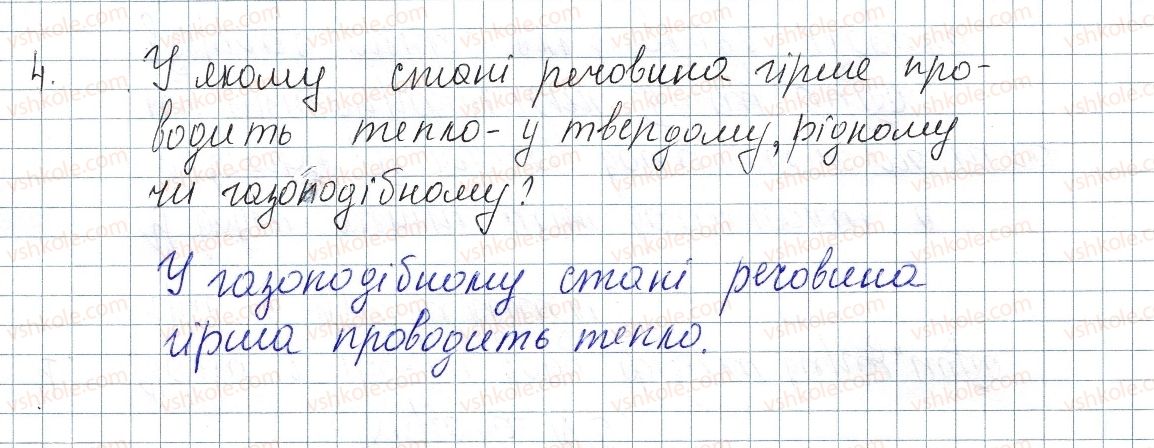 4. У якому стані речовина гірше про-
водить тепло - у твердому, рідкому
чи газоподібному?
У газоподібному стані речовина
гірша проводить тепло.